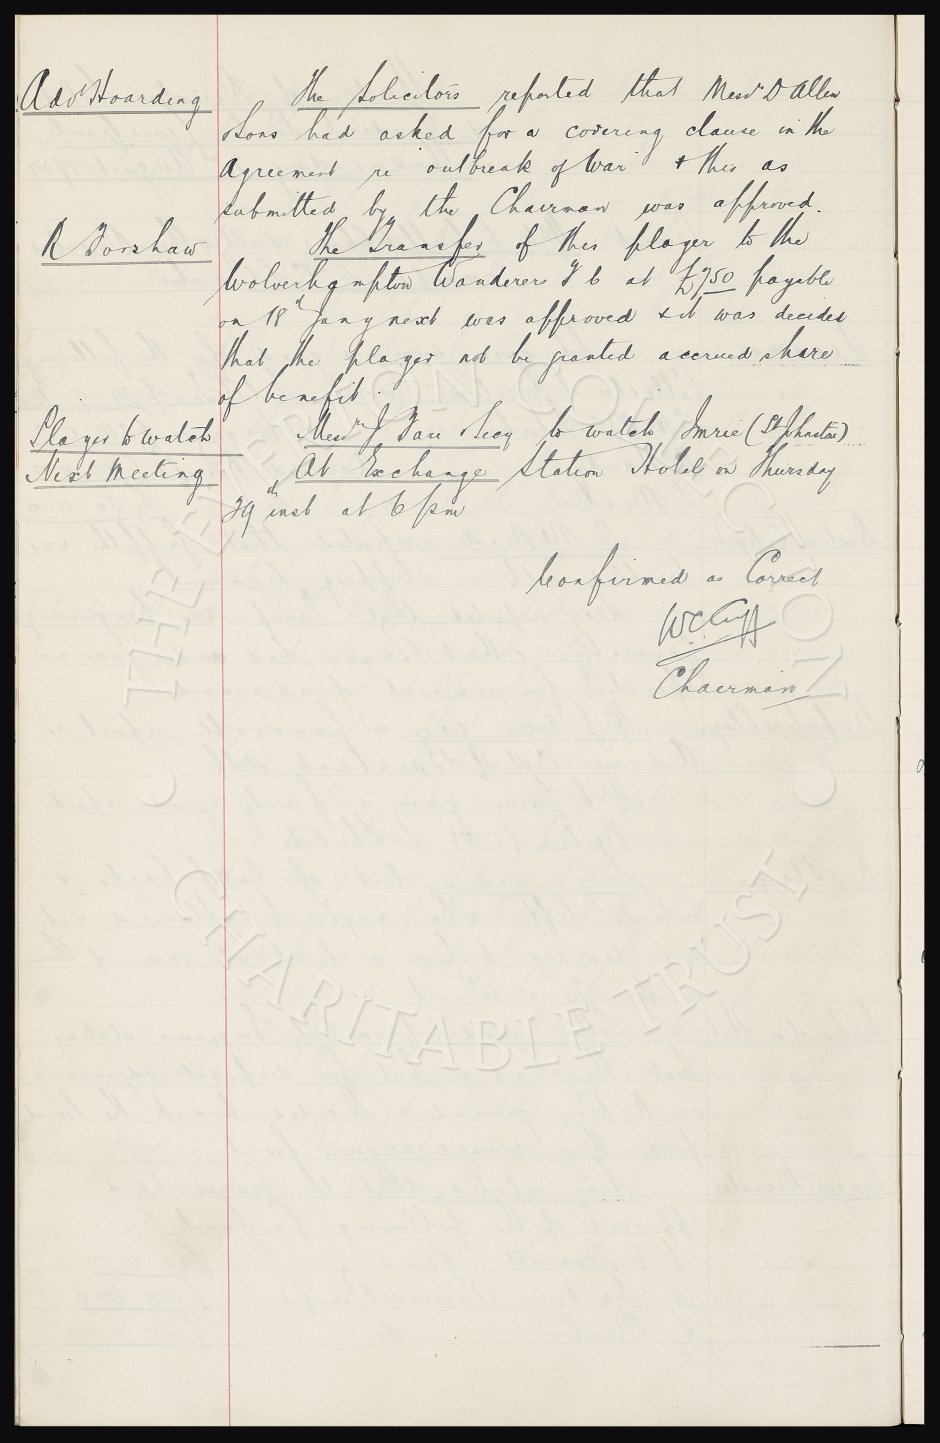 Advt Hoarding The Solicitors reported that Messrs D Allen
Sons had asked for a covering clause in the
Agreement re outbreak of War & this as
submitted by the Chairman was approved.
R Forshaw The Transfer of this player to the
Wolverhampton Wanderers F C at £750 payable
on 18th Jany next was approved & it was decided
that the player not be granted accrued share
of benefit.
Player to watch Messrs J Fare Secy to watch Imrie (St Johnstone)
Next Meeting At Exchange Station Hotel on Thursday
29th inst at 6 pm
Confirmed as Correct
WCCuff
Chairman
THE EVERTON COLLECTION
CHARITABLE TRUST